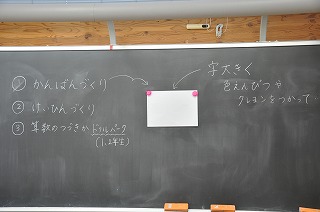 ① かんばんづくり
② けいひんづくり
③ 算数のつづきか ドリルパーク
(1,2年生)
字大きく
色えんぴつや
クレヨンをつかって…